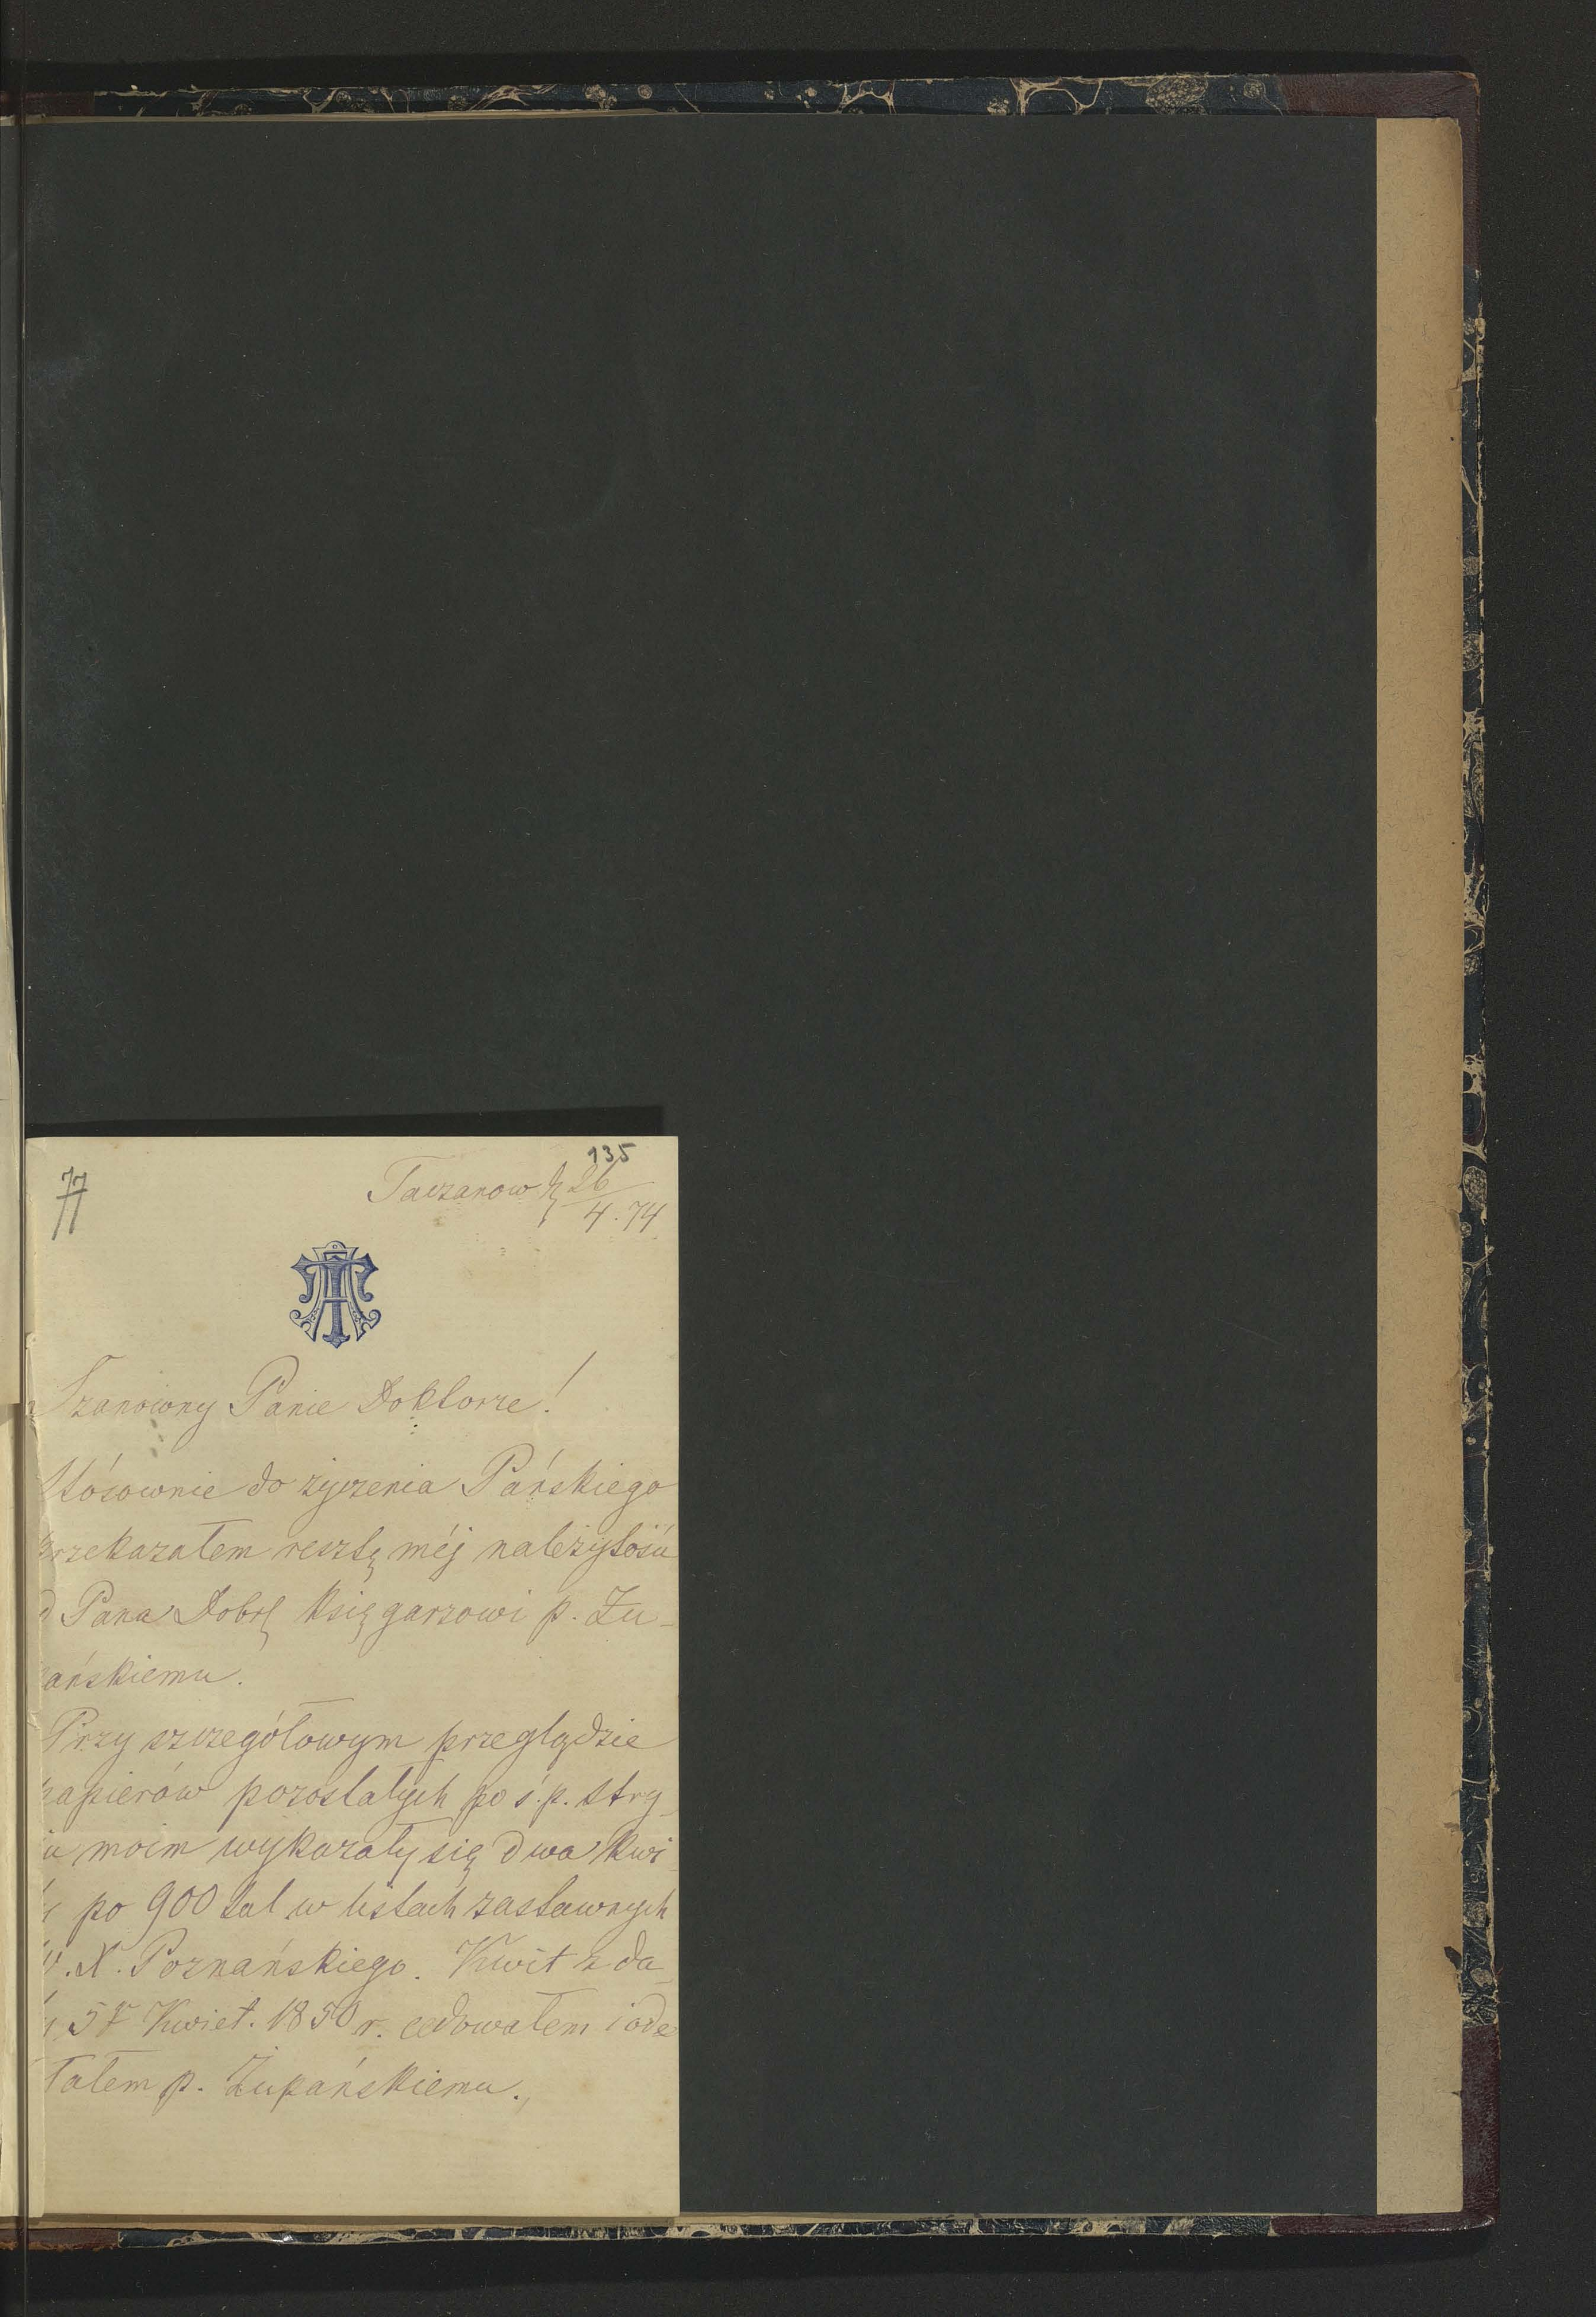 135
77
Taczanow d. 26/4. 74
Szanowny Panie Doktorze!
Stósownie do życzenia Pańskiego
przekazałem resztę méj należytości
d Pana Dobr. księgarzowi p. Żu-
ańskiemu.
Przy szczegółowym przeglądzie
papierów pozostałych po ś.p. stry-
iu moim wykazały się dwa kwi-
ty po 900 tal w listach zastawnych
W. X. Poznańskiego. Kwit z da-
ty Kwiet. 1850 r. cedowałem i ode
łałem p. Żupańskiemu.